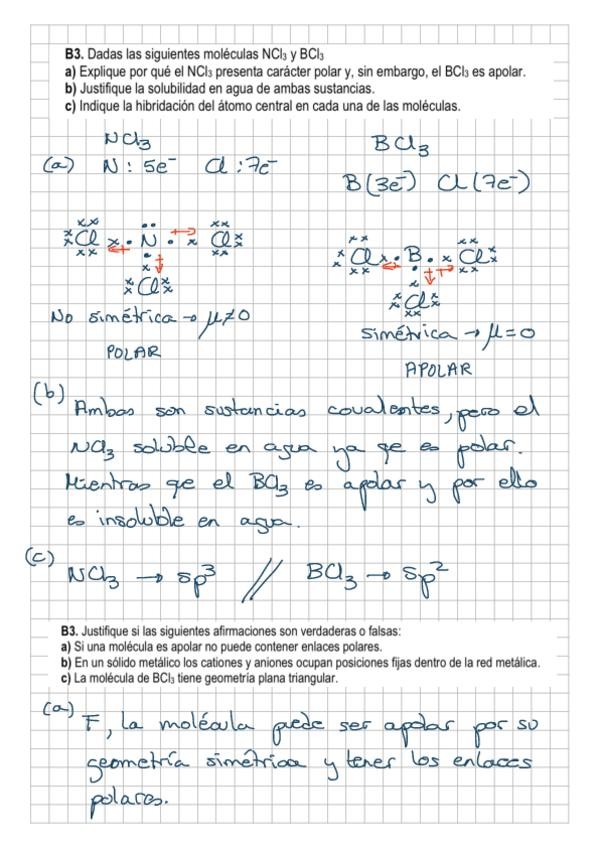 B3. Dadas las siguientes moléculas NCl₃ y BCl₃
a) Explique por qué el NCl₃ presenta carácter polar y, sin embargo, el BCl₃ es apolar.
b) Justifique la solubilidad en agua de ambas sustancias.
c) Indique la hibridación del átomo central en cada una de las moléculas.
NCl₃ BCl₃
(a) N: 5e⁻ Cl: 7e⁻
B(3e⁻) Cl(7e⁻)
Cl N Cl
Cl
Cl B Cl
Cl
No simétrica → μ≠0
POLAR
simétrica → μ=0
APOLAR
(b) Ambas son sustancias covalentes, pero el
NCl₃ soluble en agua ya qe es polar.
Mientras qe el BCl₃ es apolar y por ello
es insoluble en agua.
(c) NCl₃ → sp³ // BCl₃ → sp²
B3. Justifique si las siguientes afirmaciones son verdaderas o falsas:
a) Si una molécula es apolar no puede contener enlaces polares.
b) En un sólido metálico los cationes y aniones ocupan posiciones fijas dentro de la red metálica.
c) La molécula de BCl₃ tiene geometría plana triangular.
(a) F, la molécula puede ser apolar por su
geometría simétrica y tener los enlaces
polares.